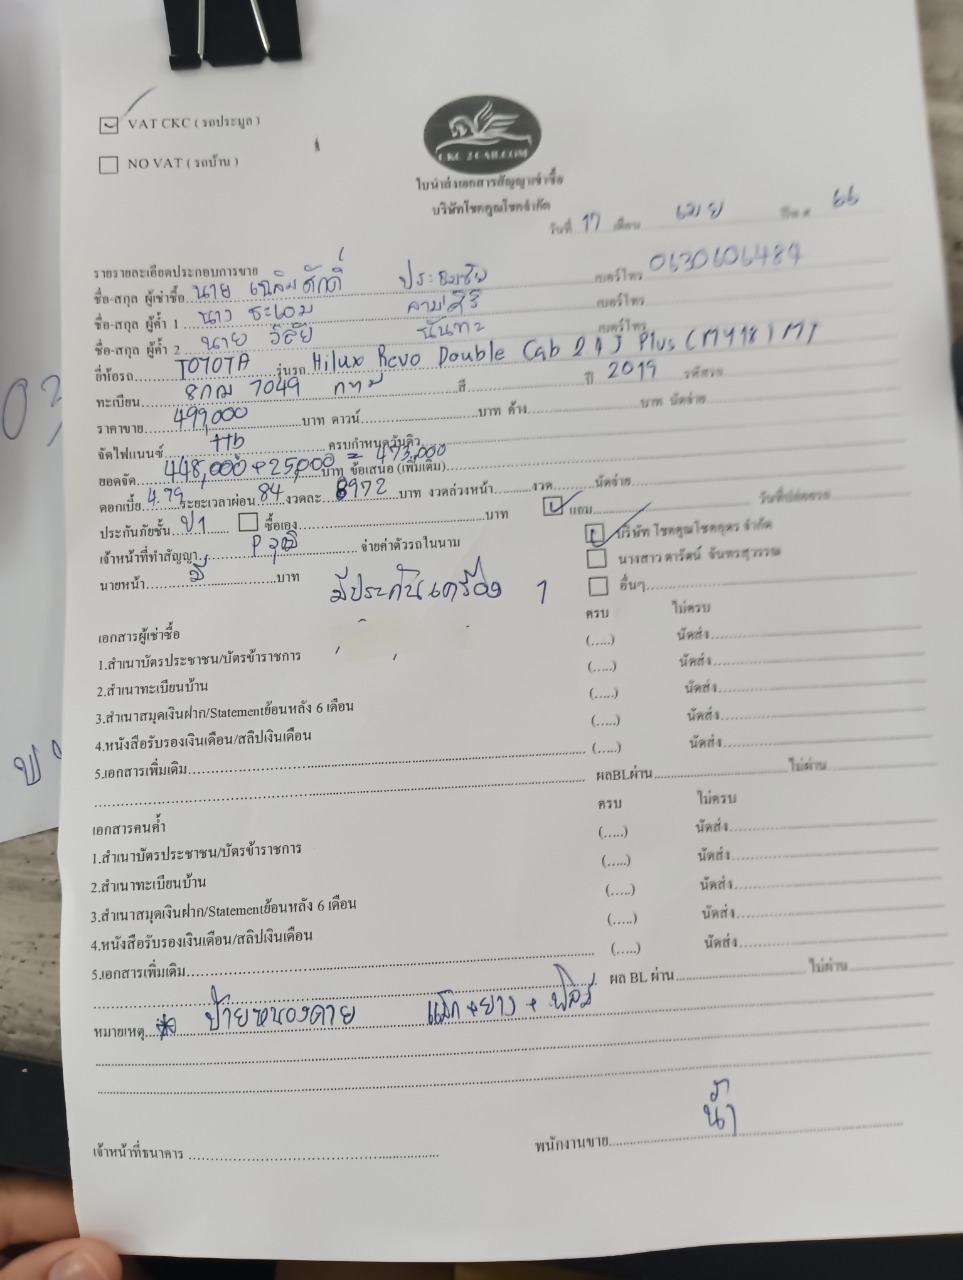 VAT CKC ( รถประมูล )
NO VAT ( รถบ้าน )
CKC 2CAR.COM
ใบนำส่งเอกสารสัญญาเช่าซื้อ
บริษัทโชคคูณโชคจำกัด
วันที่ 17 เดือน เมย ปีพ.ศ 66
รายรายละเอียดประกอบการขาย
ชื่อ-สกุล ผู้เช่าซื้อ นาย เฉลิมศักดิ์ ประสมชัย เบอร์โทร 0630606484
ชื่อ-สกุล ผู้ค้ำ 1 นาง เบอร์โทร
ชื่อ-สกุล ผู้ค้ำ 2 นาย วิลัย นันทะ เบอร์โทร
ยี่ห้อรถ TOYOTA รุ่นรถ Hilux Revo Double Cab 2.4 J Plus (MY18) MT
ทะเบียน 8กฌ 7049 กทม สี ปี 2019 รหัสรถ
ราคาขาย 499,000 บาท ดาวน์ บาท ค้าง บาท นัดจ่าย
จัดไฟแนนซ์ ttb ครบกำหนดวันคิว
ยอดจัด 448,000 + 25,000 = 473,000 บาท ข้อเสนอ (เพิ่มเติม)
ดอกเบี้ย 4.79 ระยะเวลาผ่อน 84 งวดละ 8972 บาท งวดล่วงหน้า งวด นัดจ่าย
ประกันภัยชั้น ป1 ซื้อเอง บาท แถม วันที่ปล่อยรถ
เจ้าหน้าที่ทำสัญญา P วุฒิ จ่ายค่าตัวรถในนาม บริษัท โชคคูณโชคอุดร จำกัด
นายหน้า มี บาท นางสาว ดารัตน์ จันทรสุวรรณ
มีประกันเครื่อง 1 อื่นๆ
เอกสารผู้เช่าซื้อ ครบ ไม่ครบ
1.สำเนาบัตรประชาชน/บัตรข้าราชการ (.....) นัดส่ง
2.สำเนาทะเบียนบ้าน (.....) นัดส่ง
3.สำเนาสมุดเงินฝาก/Statementย้อนหลัง 6 เดือน (.....) นัดส่ง
4.หนังสือรับรองเงินเดือน/สลิปเงินเดือน (.....) นัดส่ง
5.เอกสารเพิ่มเติม (.....) นัดส่ง
ผลBLผ่าน ไม่ผ่าน
เอกสารคนค้ำ ครบ ไม่ครบ
1.สำเนาบัตรประชาชน/บัตรข้าราชการ (.....) นัดส่ง
2.สำเนาทะเบียนบ้าน (.....) นัดส่ง
3.สำเนาสมุดเงินฝาก/Statementย้อนหลัง 6 เดือน (.....) นัดส่ง
4.หนังสือรับรองเงินเดือน/สลิปเงินเดือน (.....) นัดส่ง
5.เอกสารเพิ่มเติม (.....) นัดส่ง
ผล BL ผ่าน ไม่ผ่าน
หมายเหตุ ป้ายหนองคาย แม็ก + ยาง + ฟิล์ม
เจ้าหน้าที่ธนาคาร พนักงานขาย น้ำ